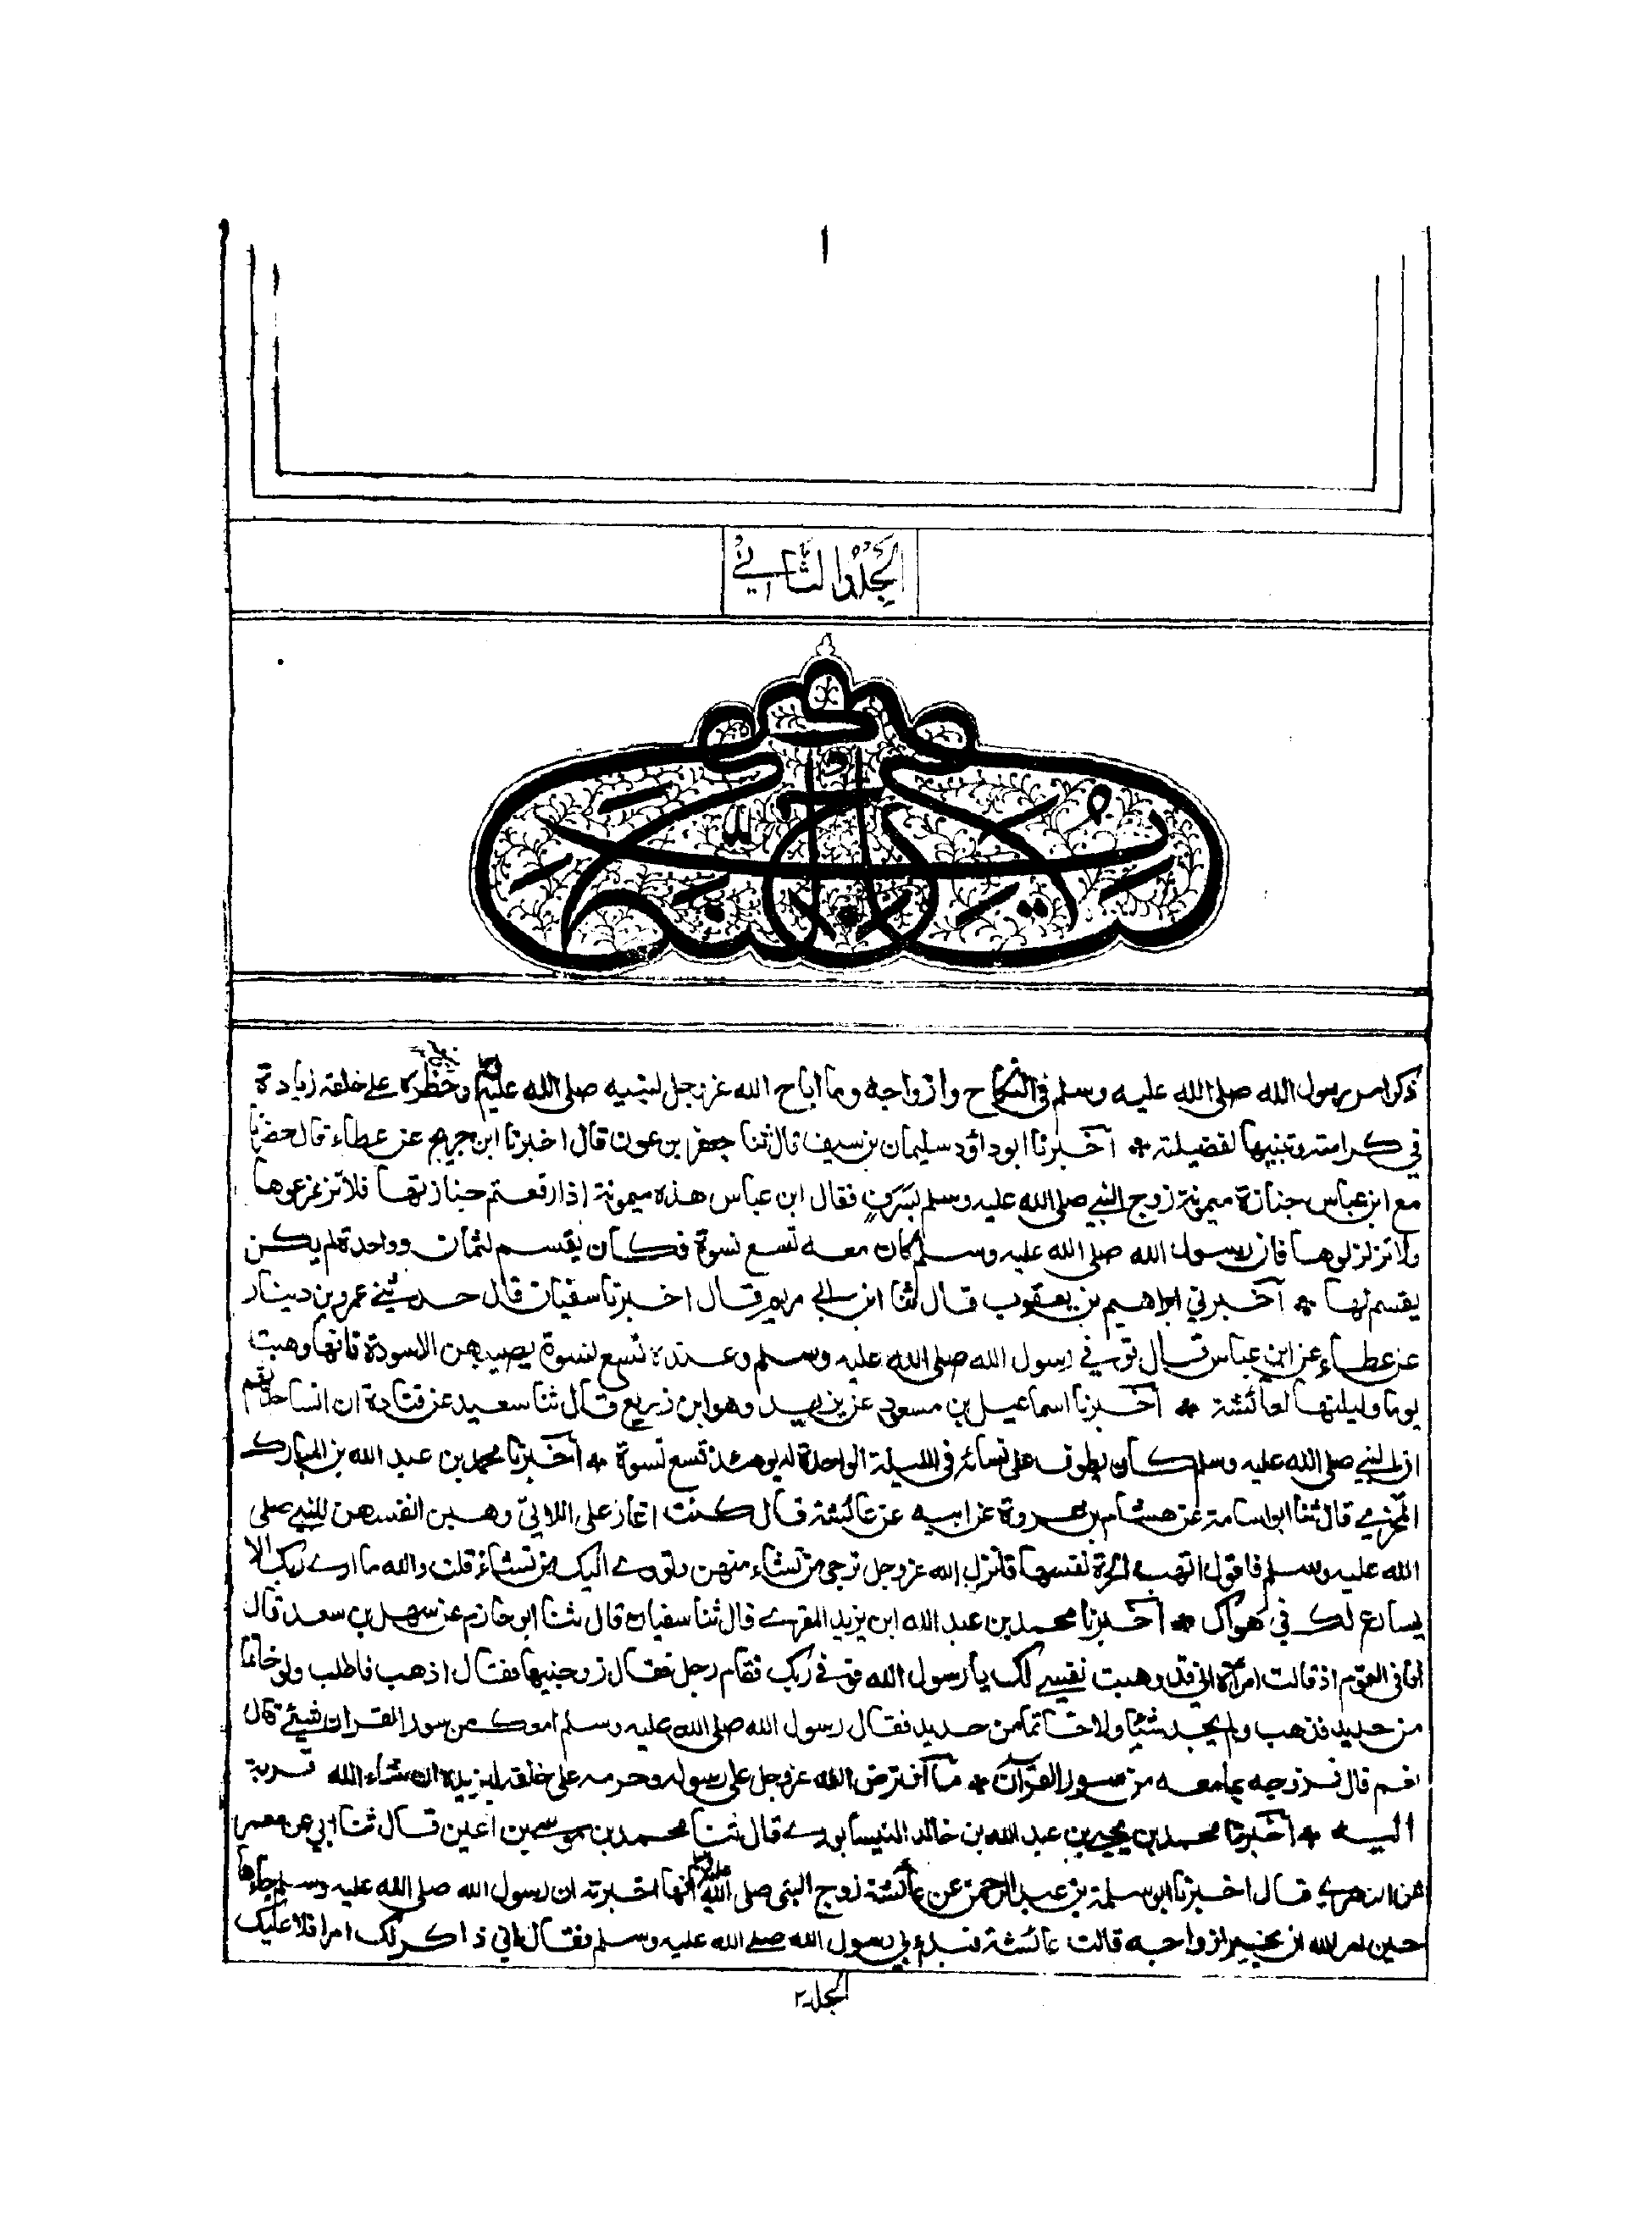 ا
المجلد الثاني
بسم الله الرحمن الرحيم
ذكر امر رسول الله صلى الله عليه وسلم فى النكاح وازواجه وما اباح الله عز وجل لنبيه صلى الله عليه وسلم وحظره على خلقه زيادة
في كرامته وتنبيها لفضيلته * اخبرنا ابو داؤد سليمان بن سيف قال ثنا جعفر بن عون قال اخبرنا ابن جريج عن عطاء قال حضرنا
مع ابن عباس جنازة ميمونة زوج النبي صلى الله عليه وسلم بسَرِفٍ فقال ابن عباس هذه ميمونة اذا رفعتم جنازتها فلا تزعزعوها
ولا تزلزلوها فان رسول الله صلى الله عليه وسلم كان معه تسع نسوة فكان يقسم لثمان وواحدة لم يكن
يقسم لها * اخبرني ابراهيم بن يعقوب قال ثنا ابن ابي مريم قال اخبرنا سفيان قال حدثني عمرو بن دينار
عن عطاء عن ابن عباس قال توفي رسول الله صلى الله عليه وسلم وعنده تسع نسوة يصيبهن الا سودة فانها وهبت
يومها وليلتها لعائشة * اخبرنا اسماعيل بن مسعود عن يزيد وهو ابن زريع قال ثنا سعيد عن قتادة ان انسا حدثهم
ان النبي صلى الله عليه وسلم كان يطوف على نسائه في الليلة الواحدة له يومئذ تسع نسوة * اخبرنا محمد بن عبد الله بن المبارك
المخرمي قال ثنا ابو اسامة عن هشام بن عروة عن ابيه عن عائشة قال كنت اغار على اللاتي وهبن انفسهن للنبي صلى
الله عليه وسلم فاقول اتهب الحرة نفسها فانزل الله عز وجل ترجي من تشاء منهن وتووي اليك من تشاء قلت والله ما اري ربك الا
يسارع لك في هواك * اخبرنا محمد بن عبد الله ابن يزيد المقري قال ثنا سفيان قال ثنا ابو حازم عن سهل بن سعد قال
انا في القوم اذ قالت امرأة اني قد وهبت نفسي لك يا رسول الله فر في رايك فقام رجل فقال زوجنيها فقال اذهب فاطلب ولو خاتما
من حديد فذهب ولم يجد شيئا ولا خاتما من حديد فقال رسول الله صلى الله عليه وسلم امعك من سور القران شيئ قال
نعم قال فزوجه بما معه من سور القرآن * ما افترض الله عز وجل على رسوله وحرمه على خلقه ليزيده ان شاء الله قربة
اليه * اخبرنا محمد بن يحيى بن عبد الله بن خالد النيسابوري قال ثنا محمد بن موسى بن اعين قال ثنا ابي عن معمر
عن الزهري قال اخبرنا ابو سلمة بن عبد الرحمن عن عائشة زوج النبي صلى الله عليه وسلم انها اخبرته ان رسول الله صلى الله عليه وسلم جاءها
حين امر الله ان يخير ازواجه قالت عائشة فبدء بي رسول الله صلى الله عليه وسلم فقال اني ذاكر لك امرا فلا عليك
المجلد ٢